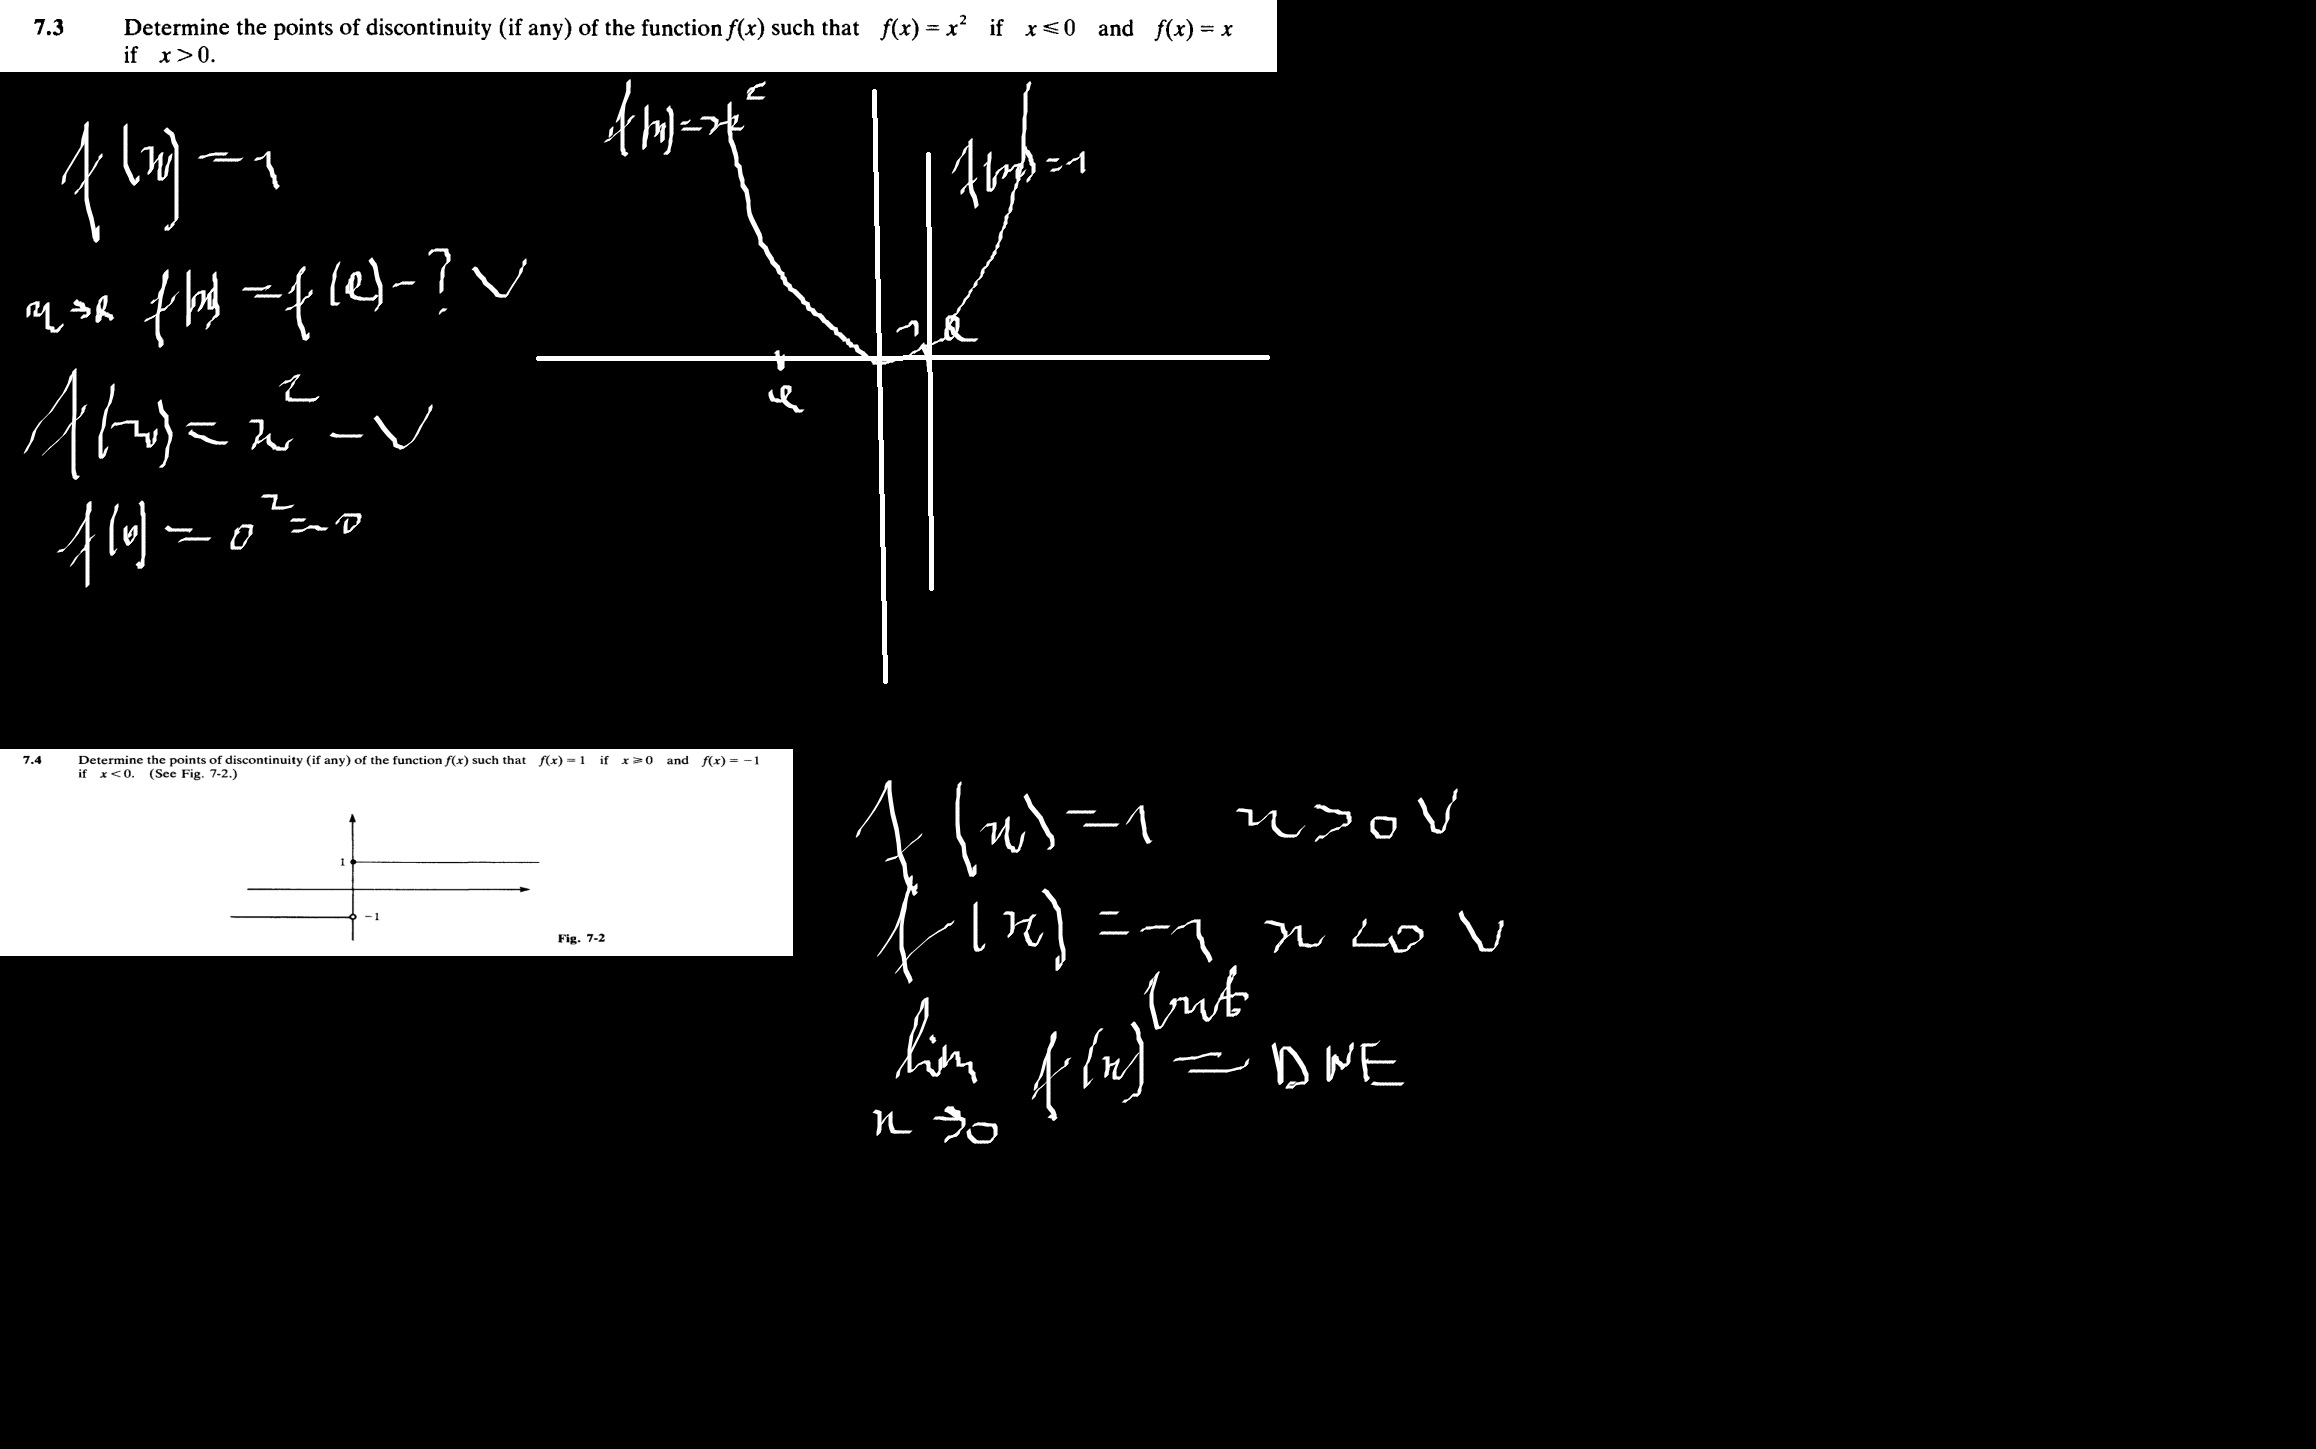 7.3 Determine the points of discontinuity (if any) of the function f(x) such that f(x) = x² if x ≤ 0 and f(x) = x
if x > 0.
f(x) = 1
x → e f(x) = f(e) - ? V
f(x) = x² - V
f(0) = 0² = 0
f(x) = x²
f(x) = 1
1
e
7.4 Determine the points of discontinuity (if any) of the function f(x) such that f(x) = 1 if x ≥ 0 and f(x) = −1
if x < 0. (See Fig. 7-2.)
1
−1
Fig. 7-2
f(x) = 1 x > 0 V
f(x) = -1 x < 0 V
but
lim f(x) = DNE
x → 0